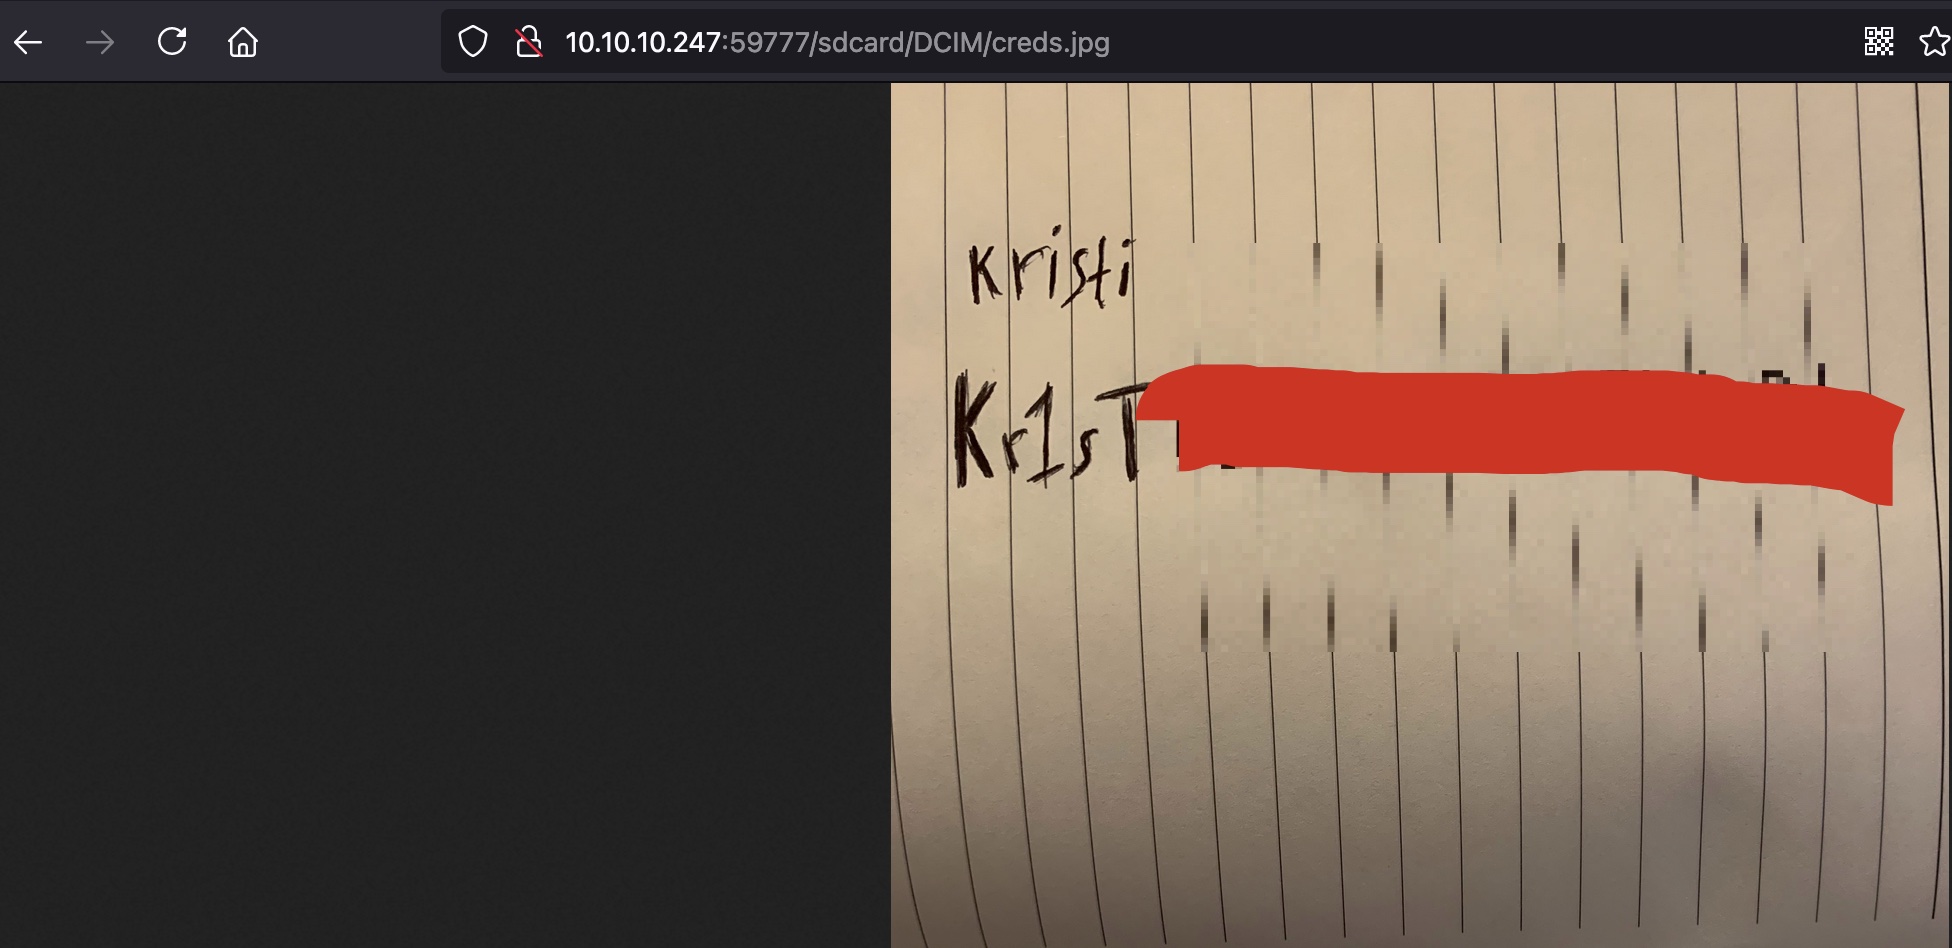 10.10.10.247:59777/sdcard/DCIM/creds.jpg
Kristi
Kr1sT